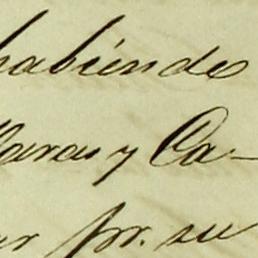 habiendo
Varas y Ca-
ar pr. su